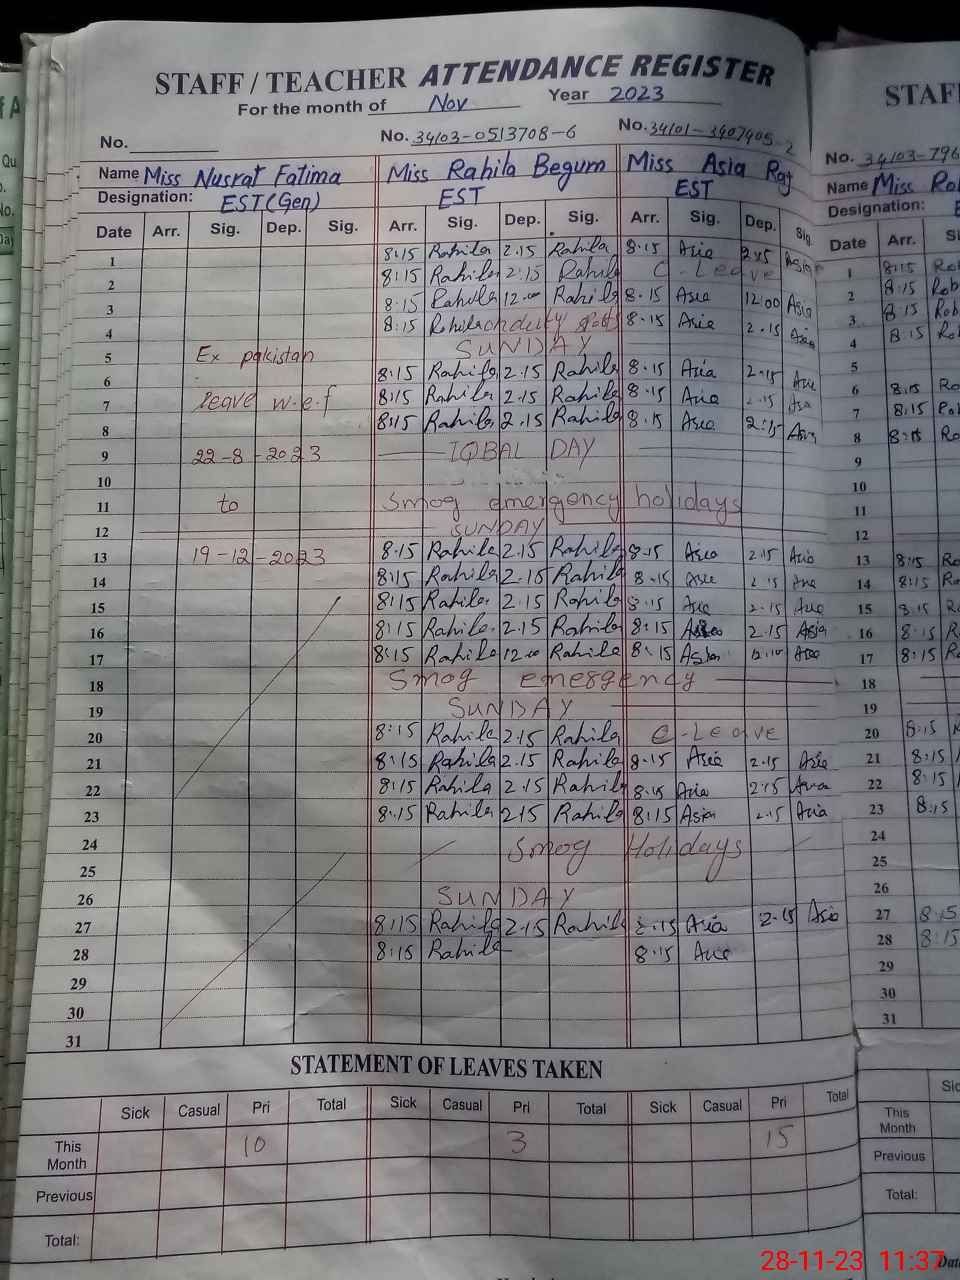 STAFF / TEACHER ATTENDANCE REGISTER
For the month of Nov Year 2023
No. No. 34103-0513708-6 No. 34101-3407405-2
Name Miss Nusrat Fatima Miss Rahila Begum Miss Asia Raj
Designation: EST (Gen) EST EST
Date Arr. Sig. Dep. Sig. Arr. Sig. Dep. Sig. Arr. Sig. Dep. Sig.
1 8:15 Rahila 2.15 Rahila 8.15 Asia 2:15 Asia
2 8:15 Rahila 2:15 Rahila C-Leave
3 8:15 Rahila 12.00 Rahila 8.15 Asia 12:00 Asia
4 8:15 Rahila on duty 8.15 Asia 2.15 Asia
5 Ex pakistan SUNDAY
6 8:15 Rahila 2.15 Rahila 8.15 Asia 2.15 Asia
7 leave w.e.f 8:15 Rahila 2.15 Rahila 8.15 Asia 2.15 Asia
8 8:15 Rahila 2.15 Rahila 8.15 Asia 2:15 Asia
9 22-8-2023 IQBAL DAY
10
11 to Smog emergency holidays
12 SUNDAY
13 19-12-2023 8:15 Rahila 2.15 Rahila 8:15 Asia 2.15 Asia
14 8:15 Rahila 2.15 Rahila 8.15 Asia 2.15 Asia
15 8:15 Rahila 2.15 Rahila 8:15 Asia 2.15 Asia
16 8:15 Rahila 2.15 Rahila 8:15 Asia 2.15 Asia
17 8:15 Rahila 12.00 Rahila 8:15 Asia Asia
18 Smog emergency
19 SUNDAY
20 8:15 Rahila 2.15 Rahila C-Leave
21 8:15 Rahila 2.15 Rahila 8.15 Asia 2.15 Asia
22 8:15 Rahila 2.15 Rahila 8:15 Asia 2.15 Asia
23 8:15 Rahila 2.15 Rahila 8:15 Asia 2.15 Asia
24 Smog Holidays
25
26 SUNDAY
27 8:15 Rahila 2.15 Rahila 8:15 Asia 2.15 Asia
28 8:15 Rahila 8:15 Asia
29
30
31
STATEMENT OF LEAVES TAKEN
Sick Casual Pri Total Sick Casual Pri Total Sick Casual Pri Total
This Month 10 3 15
Previous
Total:
STAF
No. 34103-796
Name Miss Rob
Designation:
Date Arr.
1 8:15 Rob
2 8:15 Rob
3 8:15 Rob
4 8:15 Ro
5
6 8:15 Ro
7 8:15 Rob
8 8:15 Ro
9
10
11
12
13 8:15 Ro
14 8:15 Ro
15 8:15 R
16 8:15 R
17 8:15 R
18
19
20 8:15
21 8:15
22 8:15
23 8:15
24
25
26
27 8:15
28 8:15
29
30
31
Sic
This Month
Previous
Total:
Dat
28-11-23 11:37